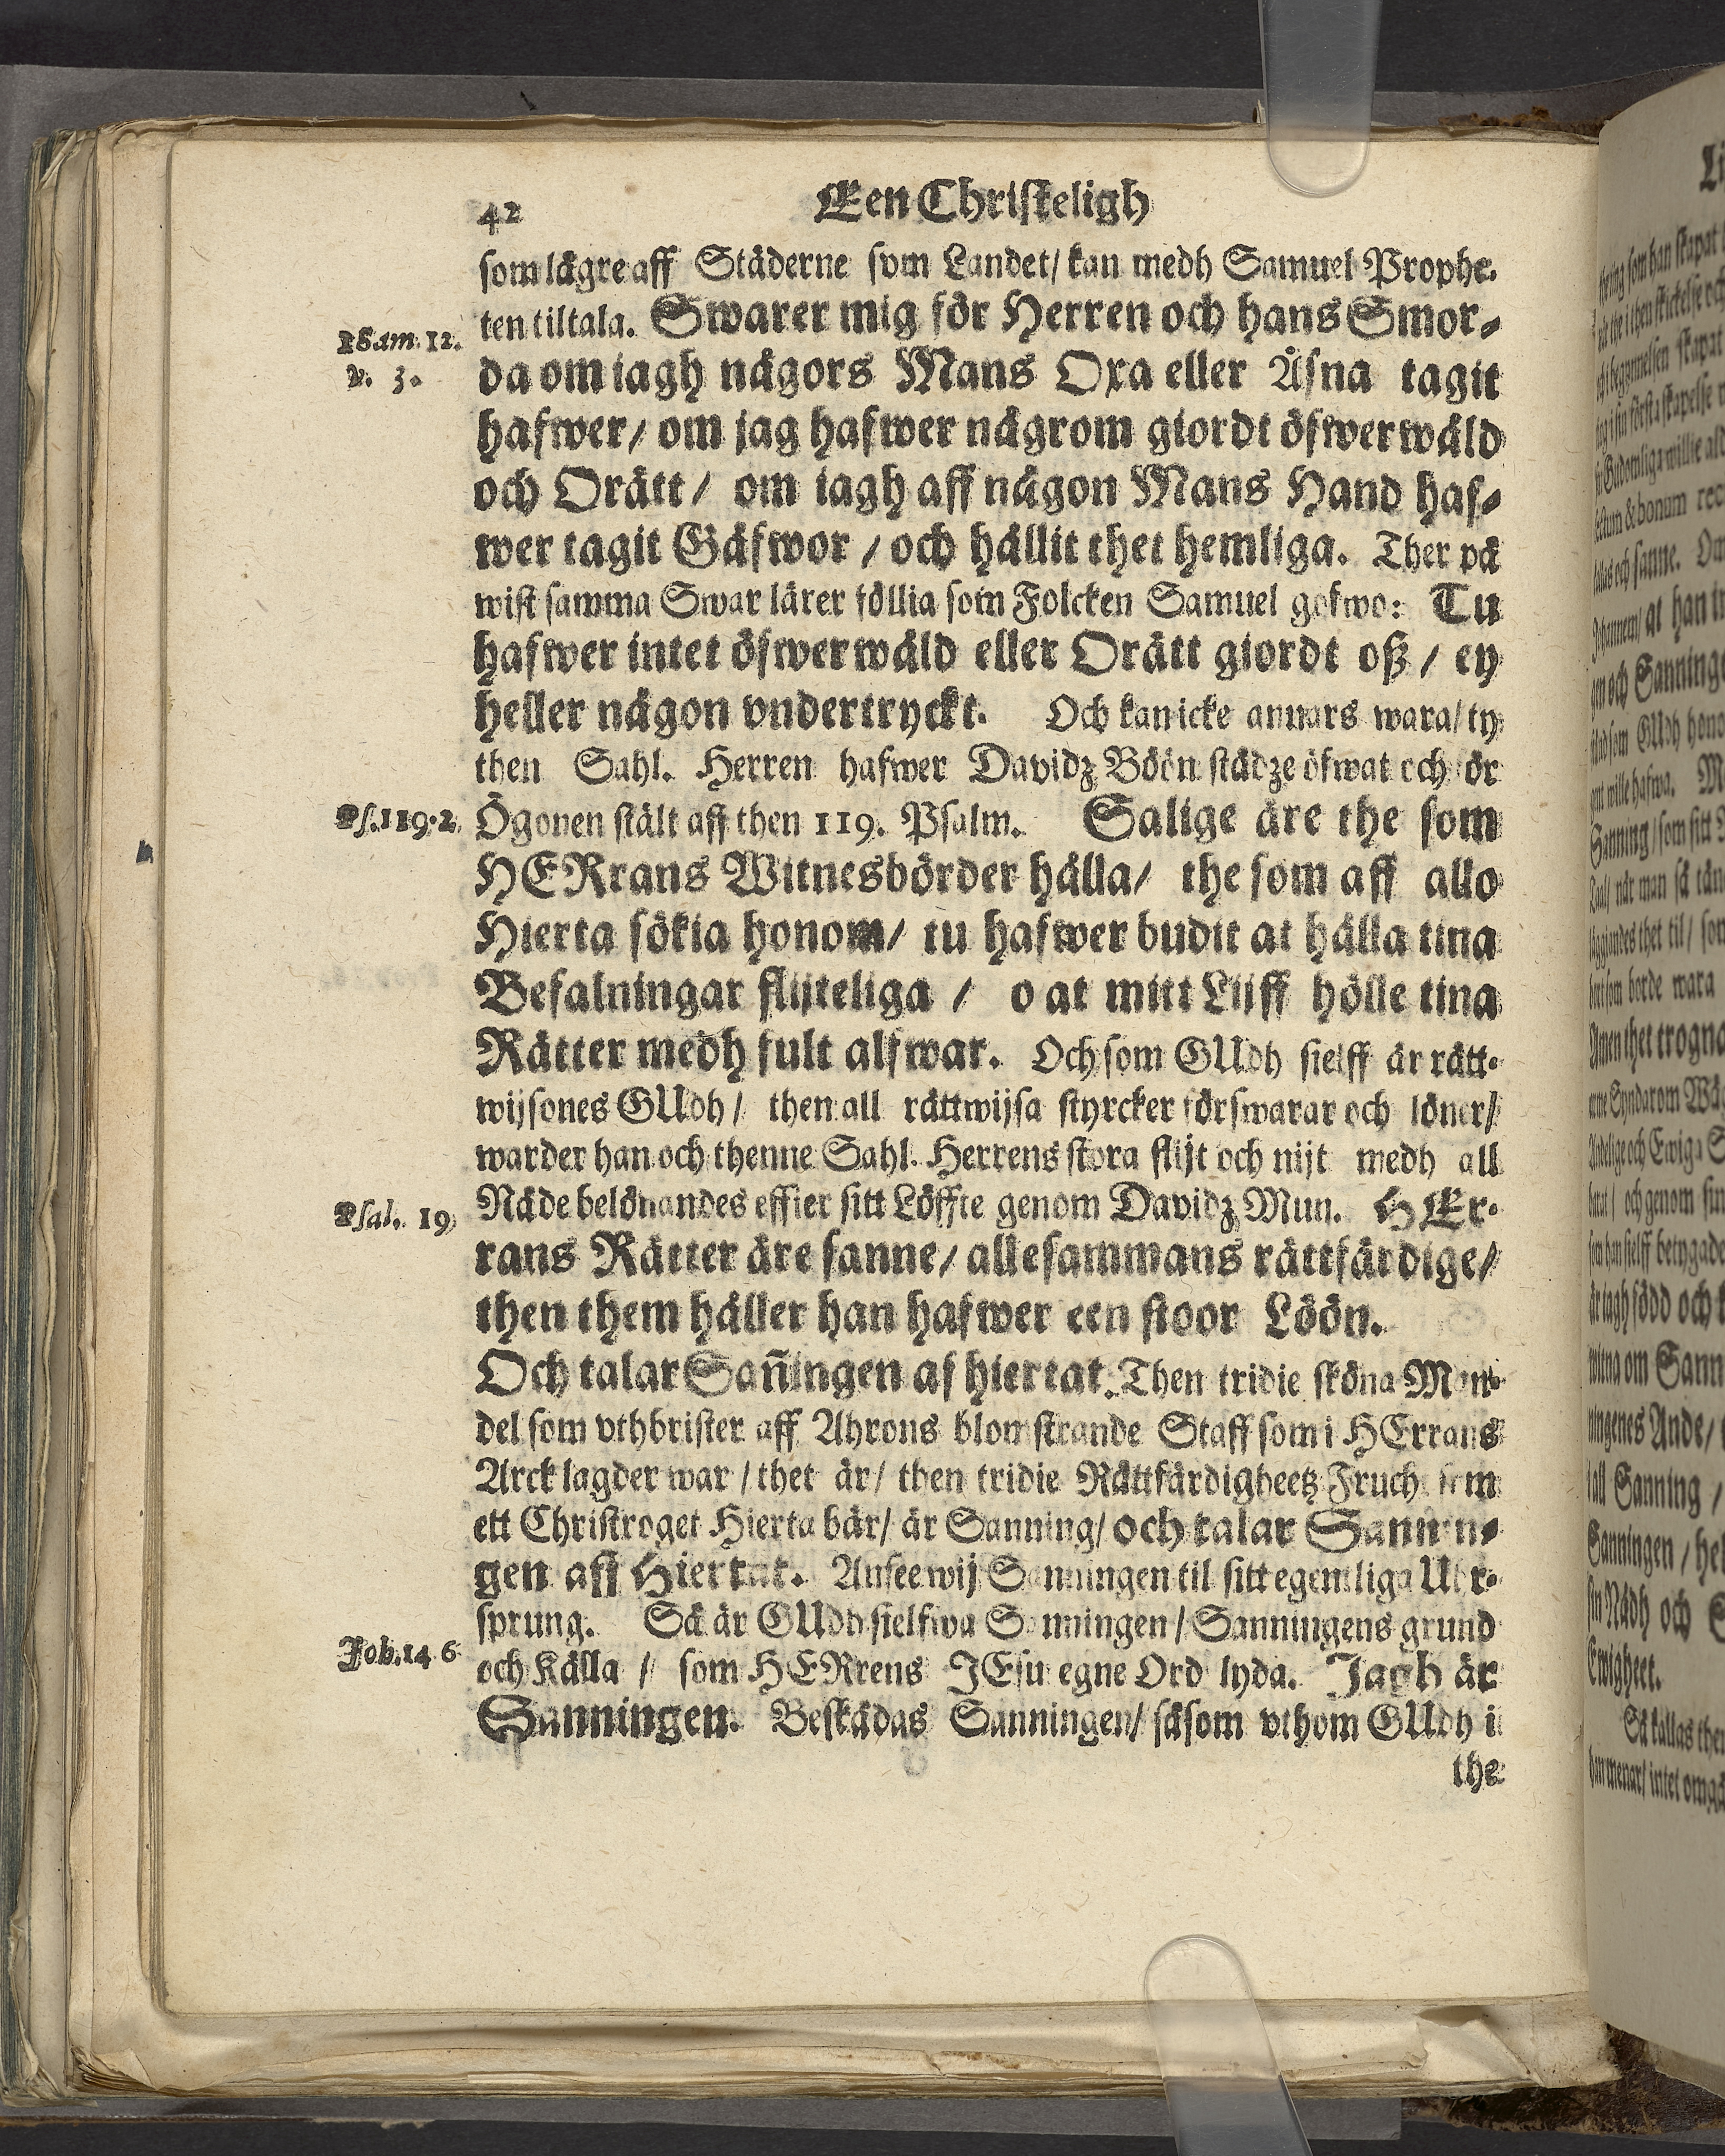 42 Een Christeligh
som lägre aff Städerne som Landet/ kan medh Samuel Prophe-
ten tiltala. Swarer mig för Herren och hans Smor-
1 Sam. 12.
v. 3.
da om iagh någors Mans Oxa eller Åsna tagit
hafwer/ om jag hafwer någrom giordt öfwerwåld
och Orätt/ om iagh aff någon Mans Hand haf-
wer tagit Gåfwor / och hållit thet hemliga. Ther på
wist samma Swar lärer föllia som Folcken Samuel gofwo: Tu
hafwer intet öfwerwåld eller Orätt giordt oß / ey
heller någon vndertryckt. Och kan icke annars wara/ ty
then Sahl. Herren hafwer Davidz Böön städze öfwat och ör
Ps. 119. 2.
Ögonen stält aff then 119. Psalm. Salige äre the som
HERrans Witnesbörder hålla/ the som aff allo
Hierta sökia honom/ tu hafwer budit at hålla tina
Befalningar flijteliga / o at mitt Lijff hölle tina
Rätter medh fult alfwar. Och som GUdh sielff är rätt-
wijsones GUdh / then all rättwijsa styrcker förswarar och löner/
warder han och thenne Sahl. Herrens stora flijt och nijt medh all
Psal. 19
Nåde belönandes effter sitt Löffte genom Davidz Mun. HEr-
rans Rätter äre sanne/ allesammans rättfärdige/
then them håller han hafwer een stoor Löön.
Och talar Sañingen af hiertat. Then tridie sköna Man-
del som vthbrister aff Ahrons blomstrande Staff som i HErrans
Arck lagder war / thet är/ then tridie Rättfärdigheetz Frucht som
ett Christroget Hierta bär/ är Sanning/ och talar Sannin-
gen aff Hiertat. Ansee wij Sanningen til sitt egentliga Uhr-
sprung. Så är GUdh sielfwa Sanningen / Sanningens grund
Joh. 14 6
och Källa / som HERrens JEsu egne Ord lyda. Jagh är
Sanningen. Beskådas Sanningen/ såsom vthom GUdh i
the